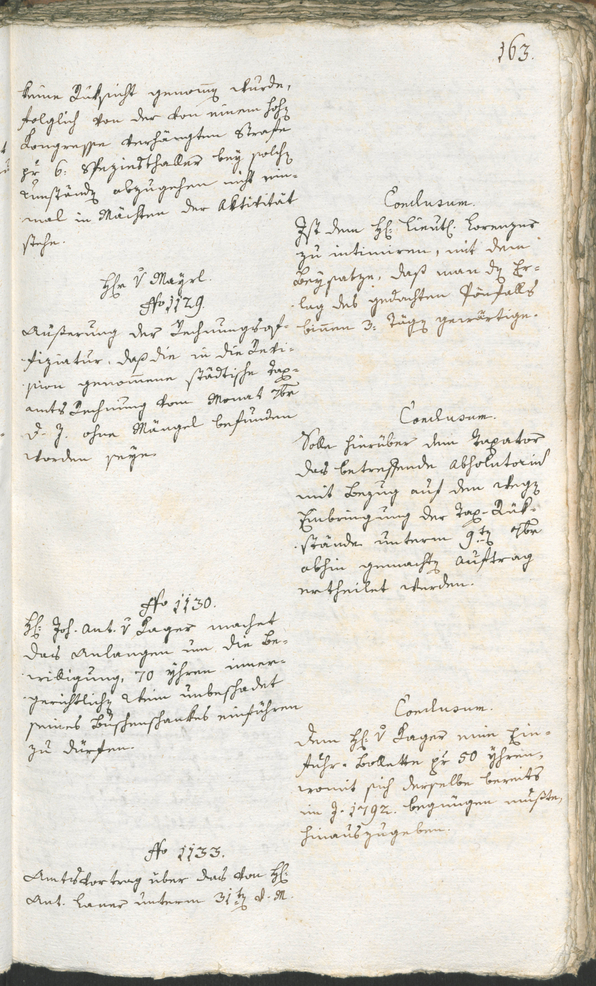 163.
keine Rüksicht genommen wurde,
folglich von der von einem hohen
Kongresse verhängten Strafe
pr 6: Speziesthaler bey solchen
Umständen abzugehen nicht ein-
mal in Mächten der Aktivität
stehe.
Conclusum.
Ist dem H: Lieut. Lorenzer
zu intimiren, mit dem
Beysatze, daß man den Er-
lag des gedachten Pönfalls
binnen 3: Tagen gewärtige.
H. v Mayrl.
No 1129.
Äußerung der Rechnungsof-
fiziatur, daß die in die Revi-
sion genommene städtische Tax-
amts Rechnung vom Monat 7br
d. J. ohne Mängel befunden
worden seye.
Conclusum.
Solle hierüber dem Taxator
das betreffende Absolutorium
mit Bezug auf den wegen
Einbringung der Tax-Rük-
stände unterm 9ten 7br
abhin gemachten Auftrag
ertheilet werden.
No 1130.
H: Joh. Ant. v Kager machet
das Anlangen um die Be-
willigung, 70 Yhren inner-
gerichtlichen Wein unbeschadet
seines Buschenschankes einführen
zu dürfen.
Conclusum.
Dem H: v Kager eine Ein-
fuhr-Bollette pr 50 Yhren,
womit sich derselbe bereits
im J. 1792. begnügen müßte,
hinauszugeben.
No 1133.
Amtsvortrag über das von H:
Ant. Laner unterm 31ten v. M.